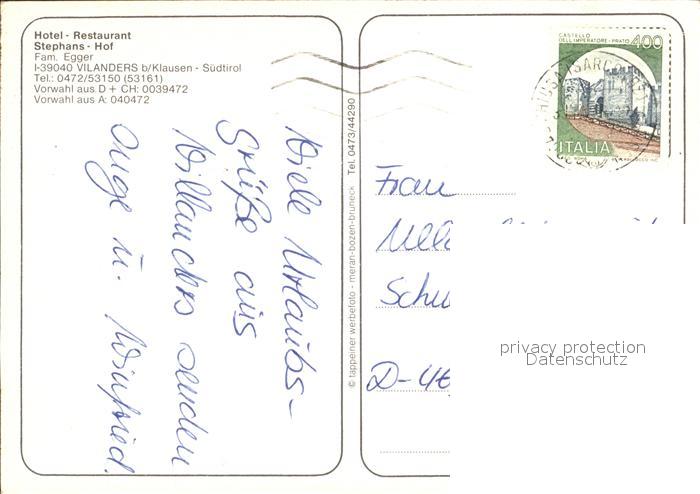 Hotel - Restaurant
Stephans - Hof
Fam. Egger
I-39040 VILANDERS b/Klausen - Südtirol
Tel.: 0472/53150 (53161)
Vorwahl aus D + CH: 0039472
Vorwahl aus A: 040472
Viele Urlaubs-
grüße aus
Villanders senden
Inge u. Winfried.
© tappeiner werbefoto - meran-bozen-bruneck Tel. 0473/44290
CASTELLO
DELL'IMPERATORE - PRATO
400
ITALIA
Frau
D-46
privacy protection
Datenschutz